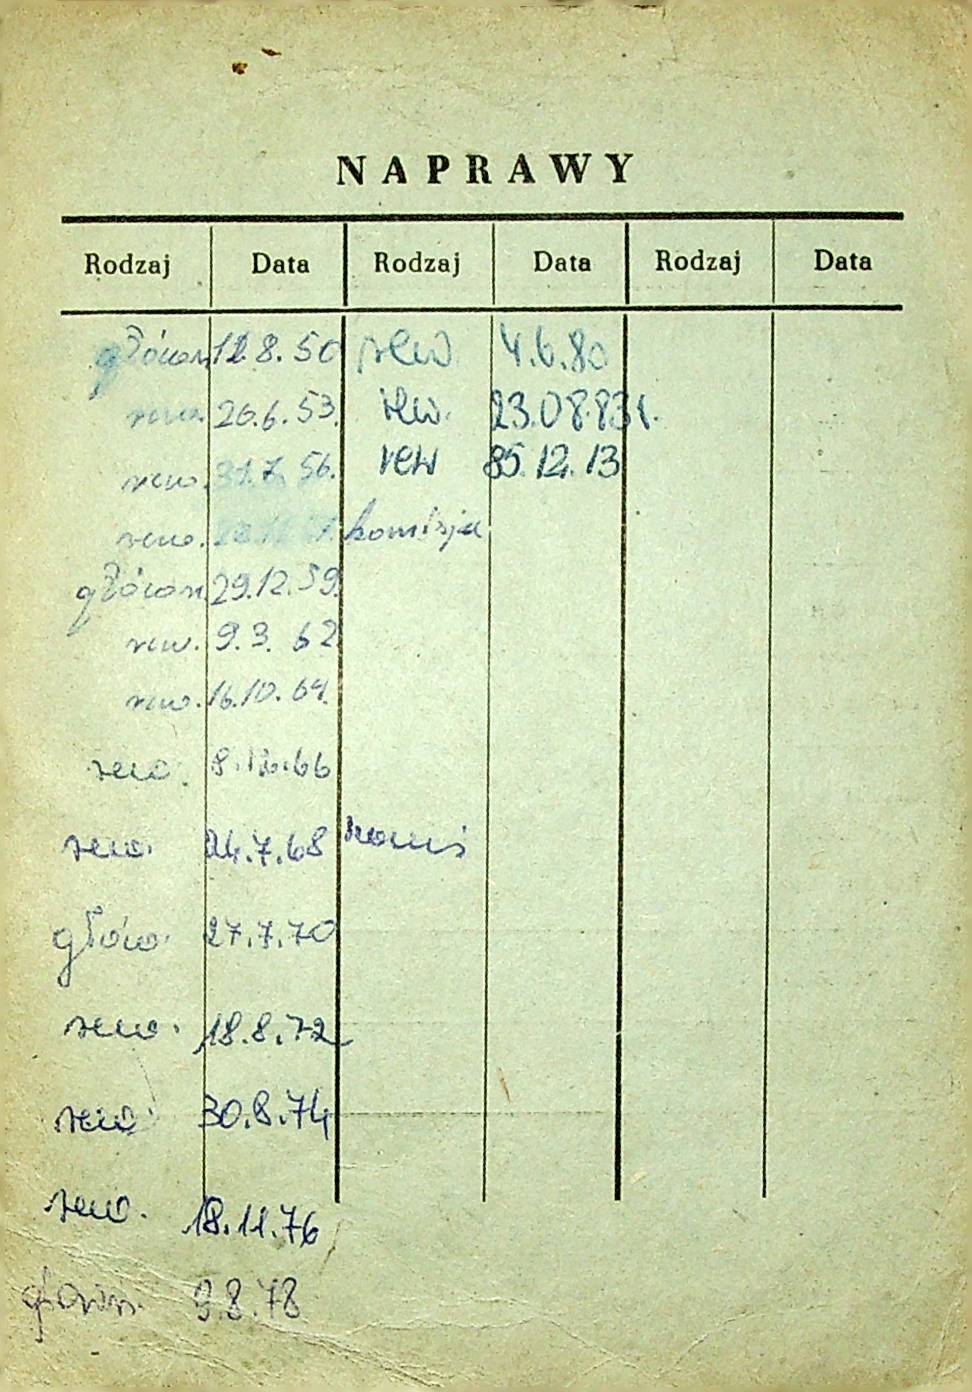 NAPRAWY
Rodzaj Data Rodzaj Data Rodzaj Data
główn. 12.8.50 rew 4.6.80
rew. 26.6.53. rew. 23.08.83r.
rew. 31.7.56. rew 85.12.13
rew. komisja
główn. 29.12.59.
rew. 9.3.62
rew. 16.10.64.
rew. 8.12.66
rew. 24.7.68
główn. 27.7.70
rew. 18.8.72
rew. 30.8.74
rew. 18.11.76
główn. 9.8.78